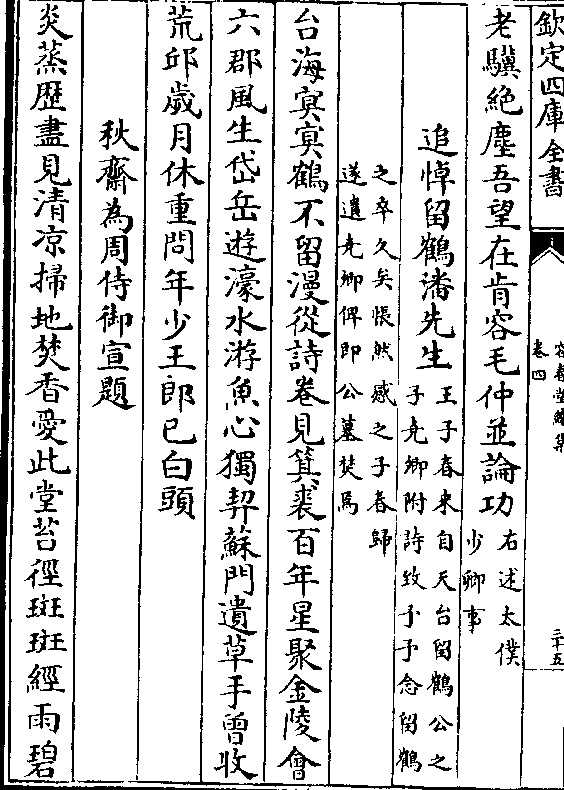 欽定四庫全書
容春堂續集
卷四
三十五
老驥絶塵吾望在肯容毛仲並論功
右述太僕
少卿事
追悼留鶴潘先生
王子春来自天台留鶴公之
子尭卿附詩致予予念留鶴
之卒久矣悵然感之子春歸
遂遺尭卿俾即公墓焚焉
台海㝠㝠鶴不留漫從詩卷見箕裘百年星聚金陵會
六郡風生岱岳遊濠水游魚心獨契蘇門遺草手曾收
荒邱歲月休重問年少王郎已白頭
秋齋為周侍御宣題
炎蒸歴盡見清凉掃地焚香愛此堂苔徑斑斑經雨碧